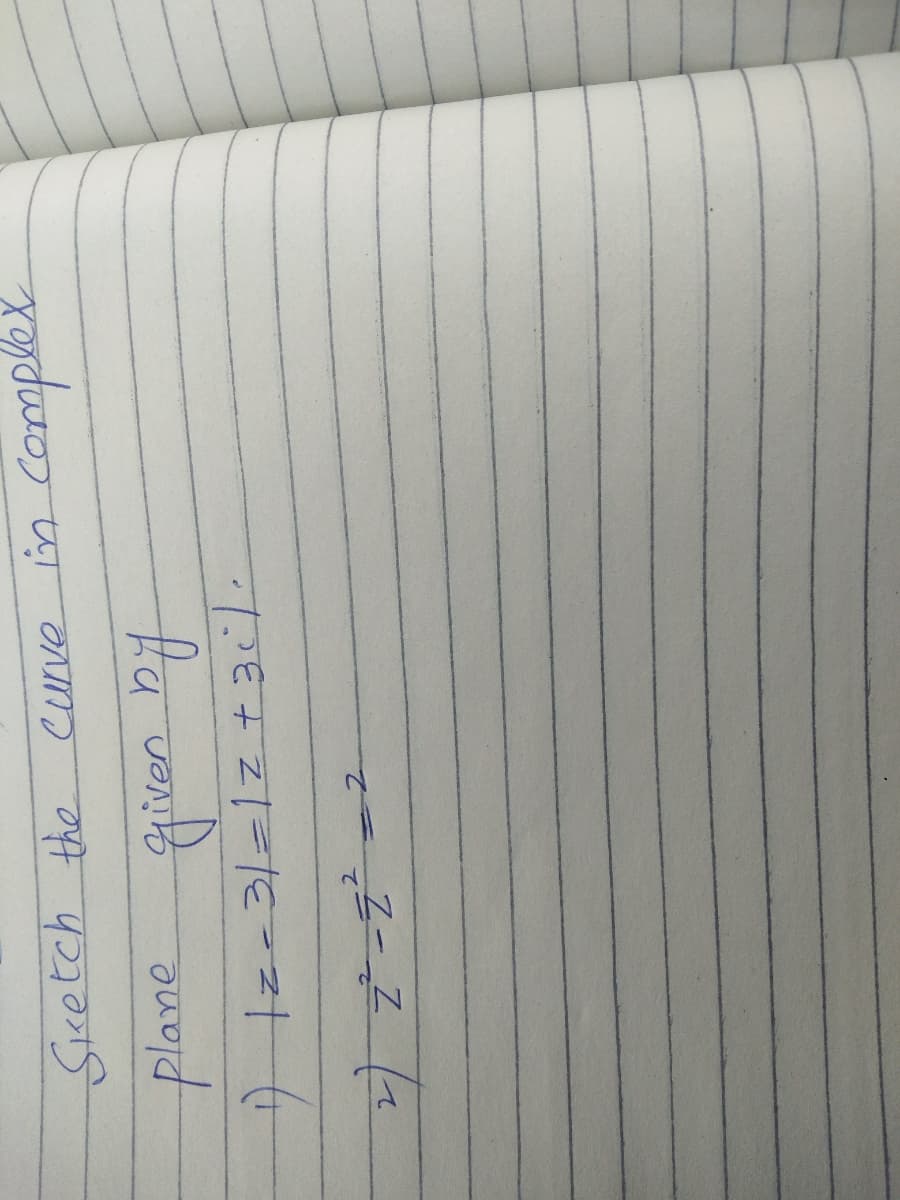 Sketch the curve in complex
plane given by
1) |z-3|=|z+3i|.
2) z²-z̅²=2